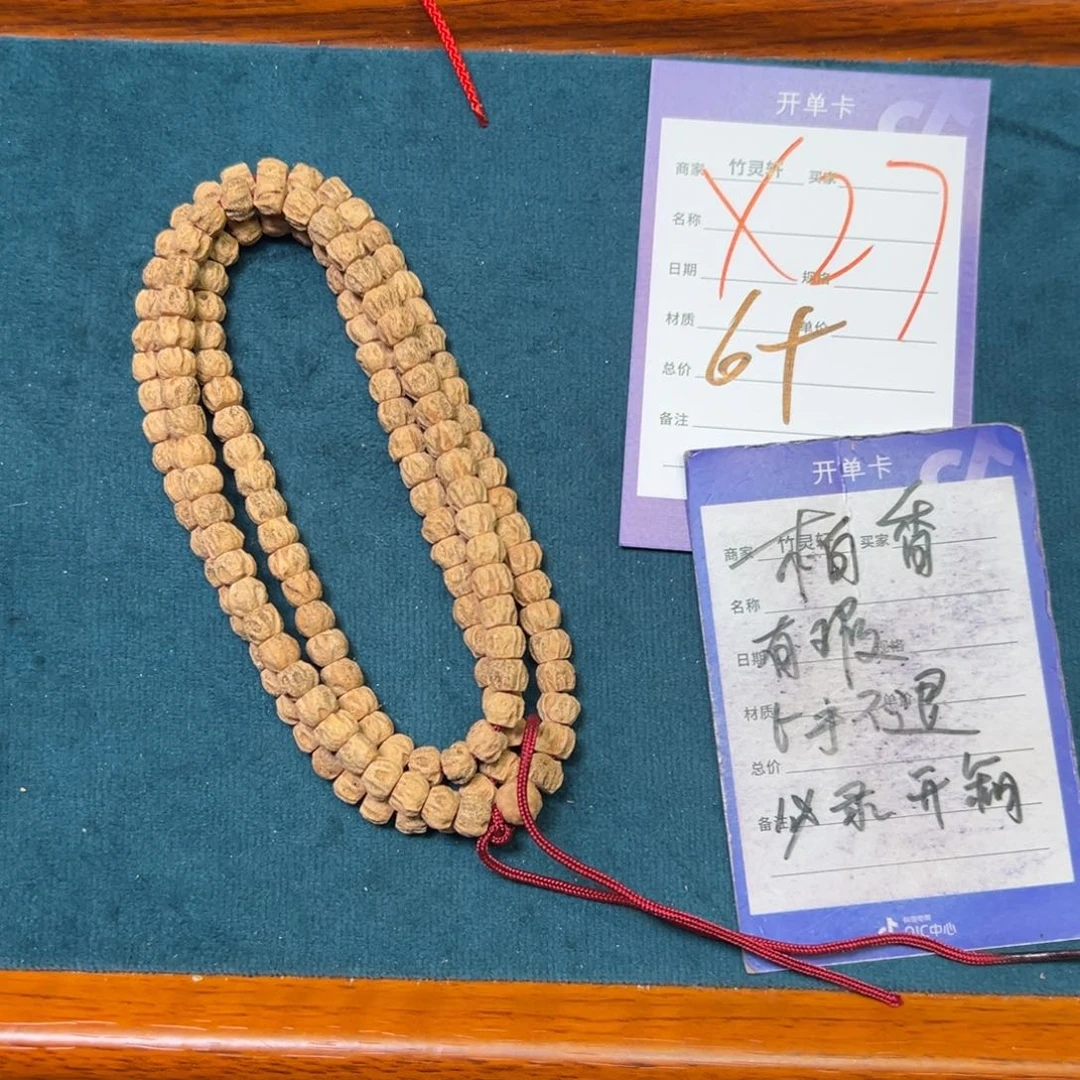 开单卡
商家 竹灵轩 买家
X27
名称
日期 规格
材质 单价
6十
总价
备注
开单卡
商家 竹灵轩 买家
柏香
名称
有瑕
日期 规格
材质 单价
下手不退
总价
必录开箱
备注
QIC中心